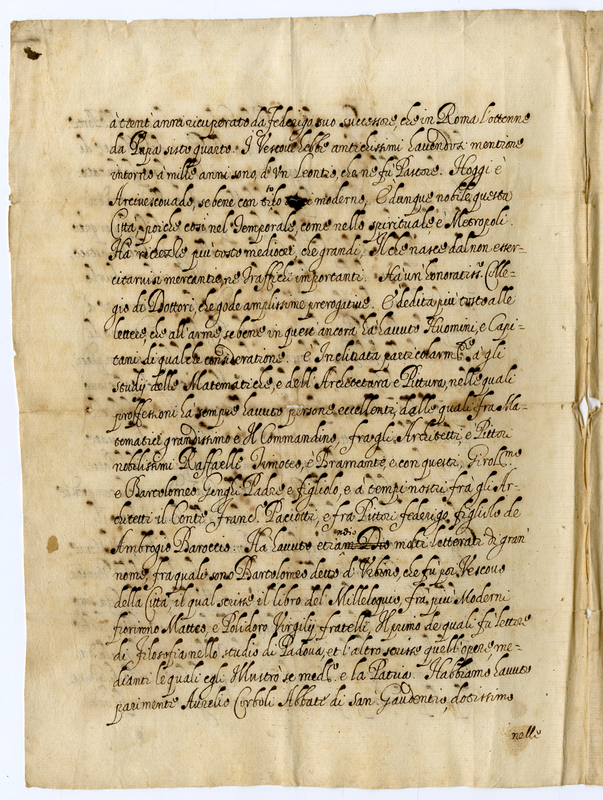 a trent'anni ricuperato da Federigo suo successore, che in Roma l'ottenne
da Papa Sisto quarto. I Vescovi hebbe antichissimi havendosi mentione
intorno à mille anni sono d'Vn Leontio, che ne fù Pastore. Hoggi è
Arcivescovado, se bene con titolo moderno. E dunque nobile questa
Città, poiche così nel Temporale, come nello spirituale è Metropoli.
Ha ricchezze più tosto mediocri, che grandi, Il che nasce dal non esser-
citarvisi mercantie, ne Traffichi importanti. Ha un honoratiss.º Colle-
gio di Dottori, che gode amplissime prerogative. E dedita più tosto alle
lettere, che all'arme, se bene in queste ancora ha havuto Huomini, e Capi-
tani di qualche consideratione. è Inclinata particolarm.te a gli
studij delle Matematiche, e dell'Architettura e Pittura, nelle quali
professioni ha sempre havuto persone eccellenti, dalle quali frà Ma-
tematici grandissimo è Il Commandino, fra gli Architetti, e Pittori
nobilissimi Raffaelle Timoteo, e Bramante, e con questi, Girol.mo
e Bartolomeo Genghi Padre e figliolo, e a tempi nostri frà gli Ar-
chitetti il Conte Franc.º Paciotti, e frà Pittori Federigo figliolo de
Ambrogio Baroccio. Ha havuto etiamdio molti letterati di gran
nome, fra quali sono Bartolomeo detto d'Vrbino, che fù poi Vescovo
della Città, il qual scrisse il libro del Milleloquio, frà più Moderni
fiorirono Matteo, e Polidoro Virgilij fratelli, Il primo de quali fù lettore
di filosofia nello studio di Padova, et l'altro scrisse quell'opere, me-
dianti le quali egli Illustrò se med.º e la Patria. Habbiamo havuto
parimenti Aurelio Corboli Abbate di San Gaudentio, dotissimo
nelle